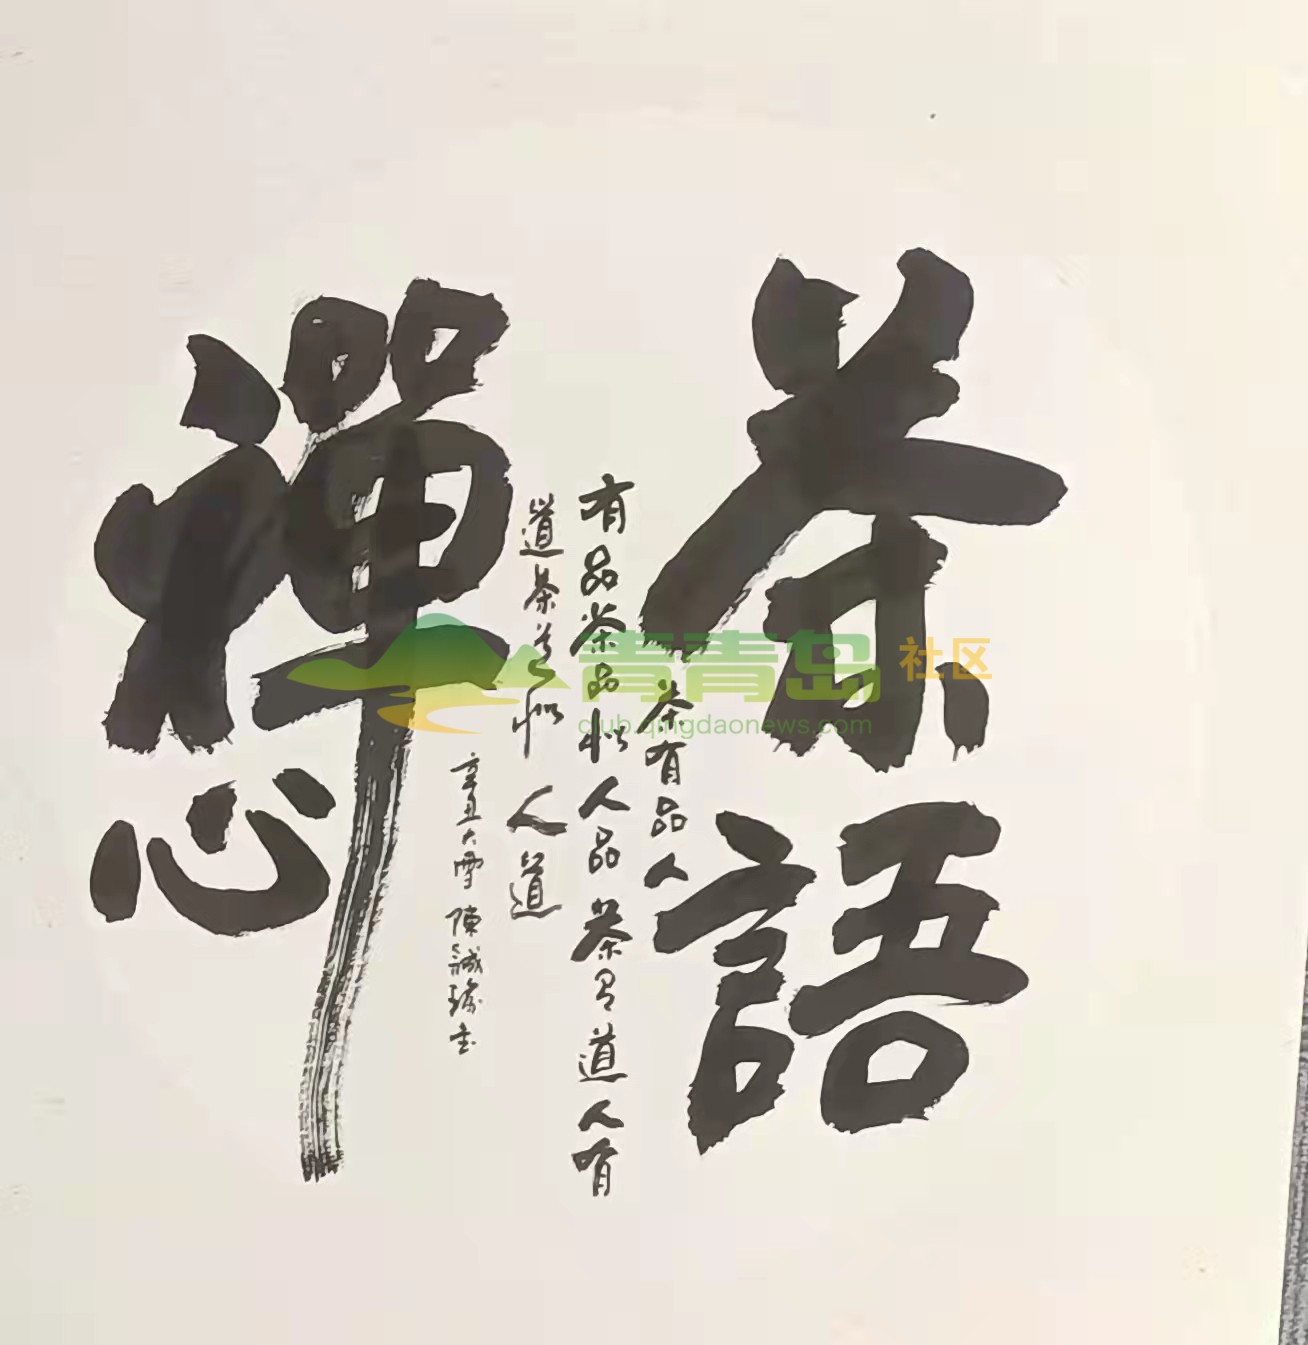 茶語
禪心
茶有品人
有品茶品似人品茶有道人有
道茶道似人道
辛丑大雪陳誠瑜書
青青岛社区
club.qingdaonews.com